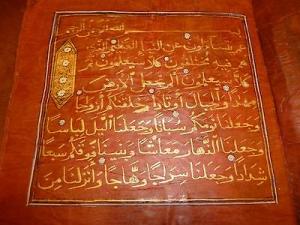 بسم الله الرحمن الرحيم
عم يتساءلون عن النبإ العظيم الذي
هم فيه مختلفون كلا سيعلمون ثم
كلا سيعلمون ألم نجعل الأرض
مهادًا والجبال أوتادًا وخلقنكم أزواجًا
وجعلنا نومكم سباتًا وجعلنا اليل لباسًا
وجعلنا النهار معاشًا وبنينا فوقكم سبعًا
شدادًا وجعلنا سراجًا وهاجًا وأنزلنا من